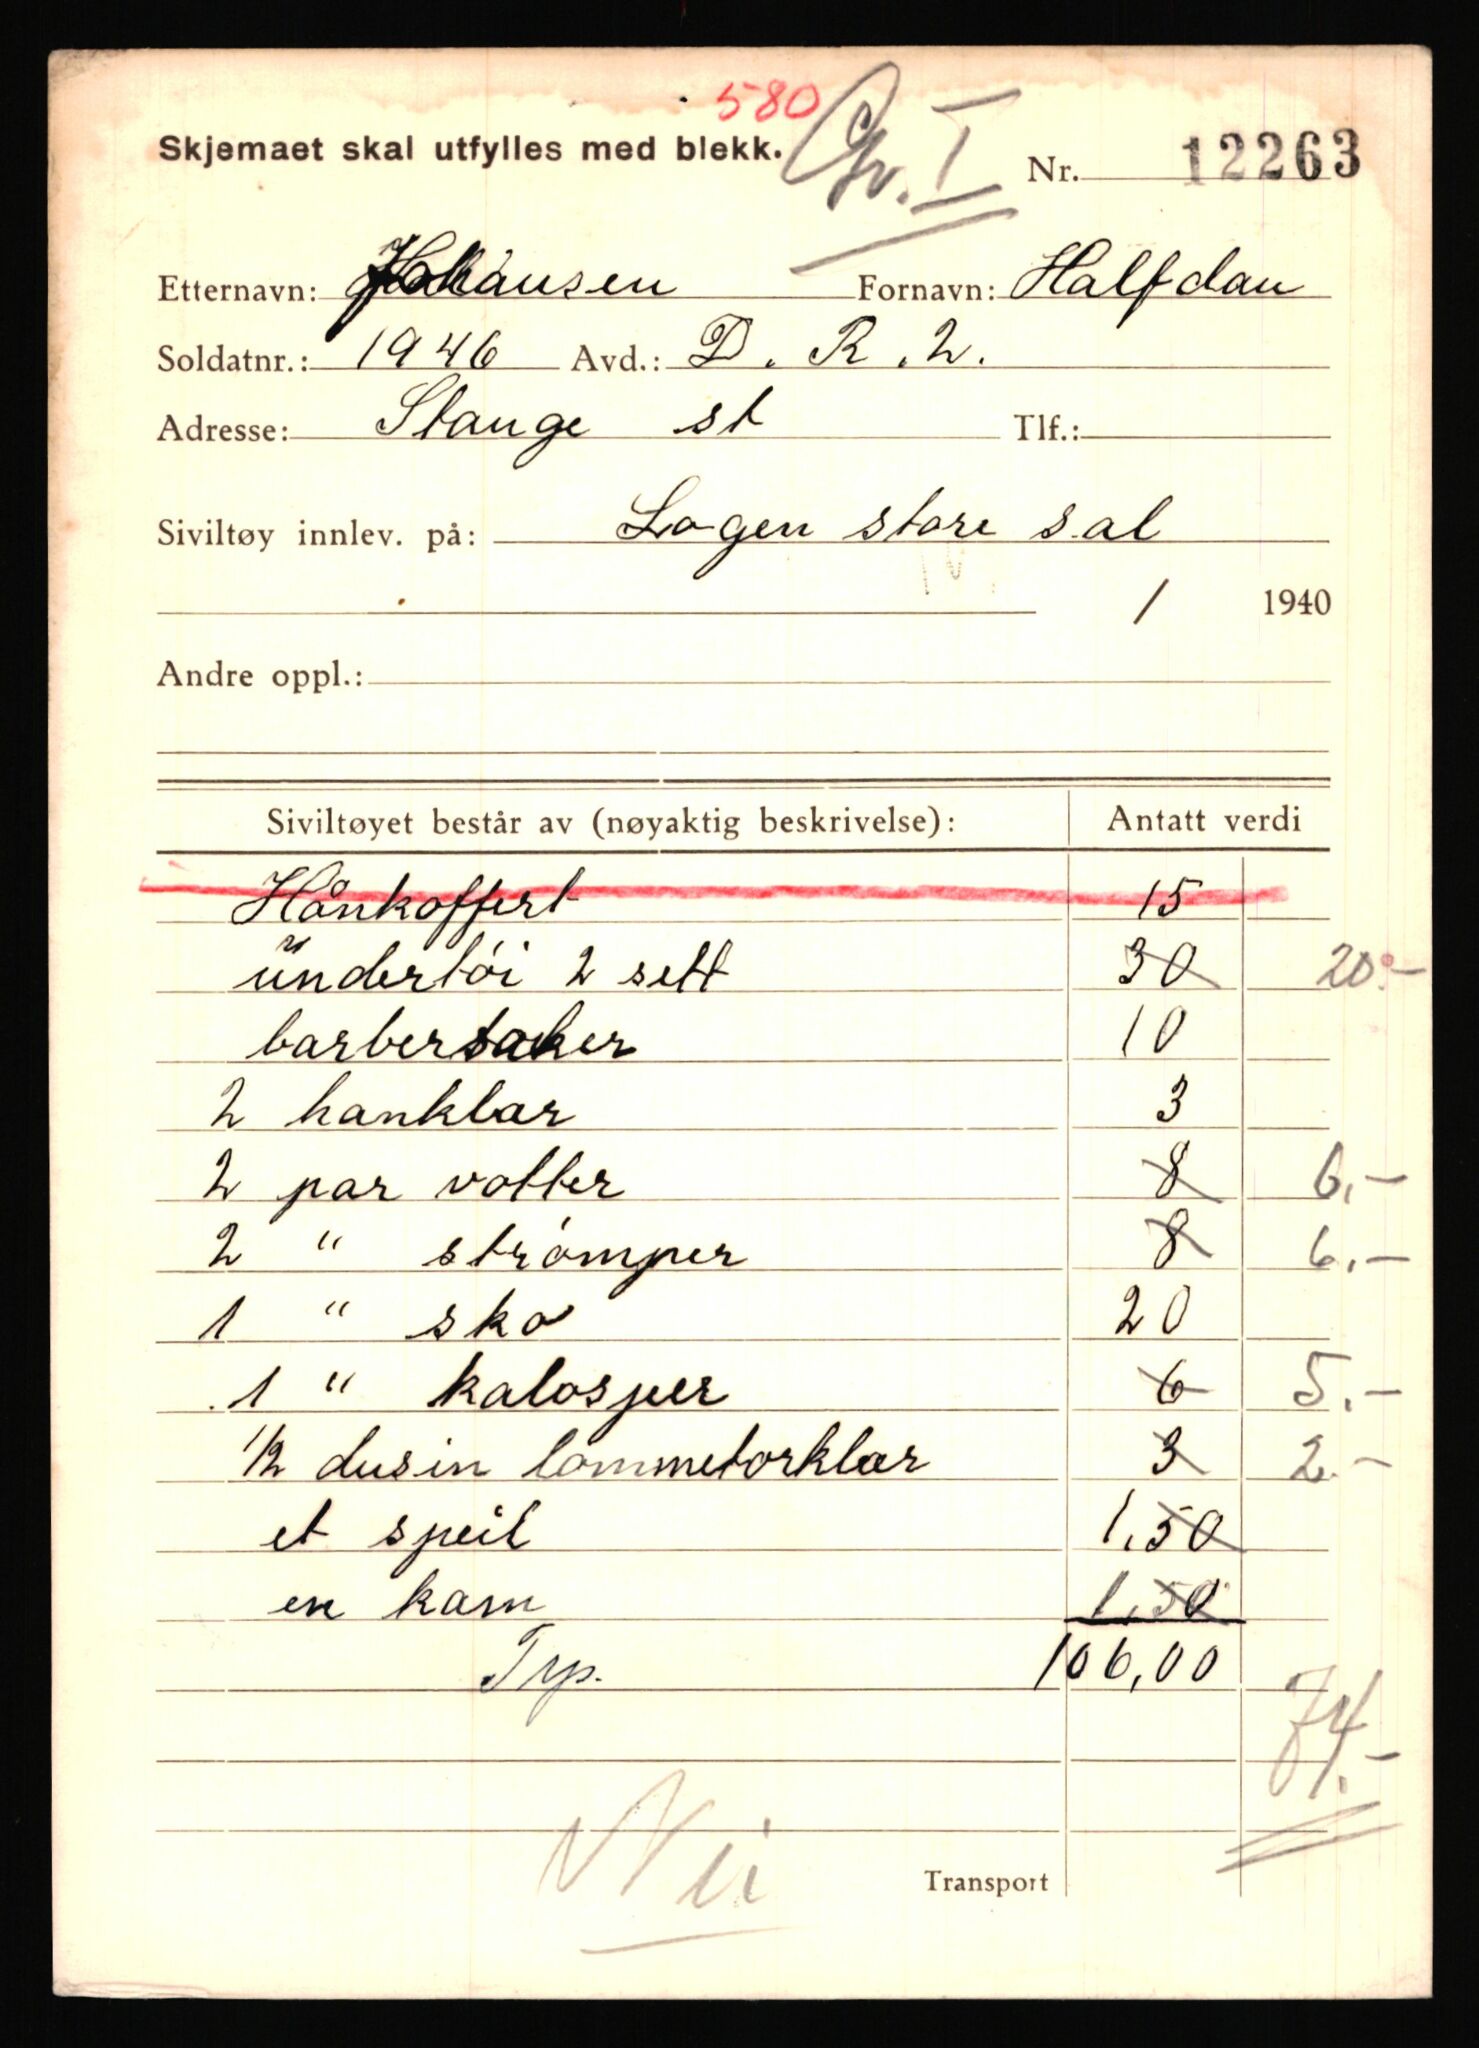 580
Gr. I
Skjemaet skal utfylles med blekk.
Nr. 12263
Etternavn: Johansen Fornavn: Halfdan
Soldatnr.: 1946 Avd.: D. R. 2.
Adresse: Stange st Tlf.:
Siviltøy innlev. på: Logen store sal
/ 1940
Andre oppl.:
Siviltøyet består av (nøyaktig beskrivelse): Antatt verdi
Hånkoffert 15
Undertöi 2 sett 30 20.-
barbersaker 10
2 hanklær 3
2 par votter 8 6,-
2 " strömper 8 6,-
1 " sko 20
1 " kalosjer 6 5.-
1/2 dusin lommetorklær 3 2.-
et speil 1,50
en kam 1,50
106,00
74.-
Transport